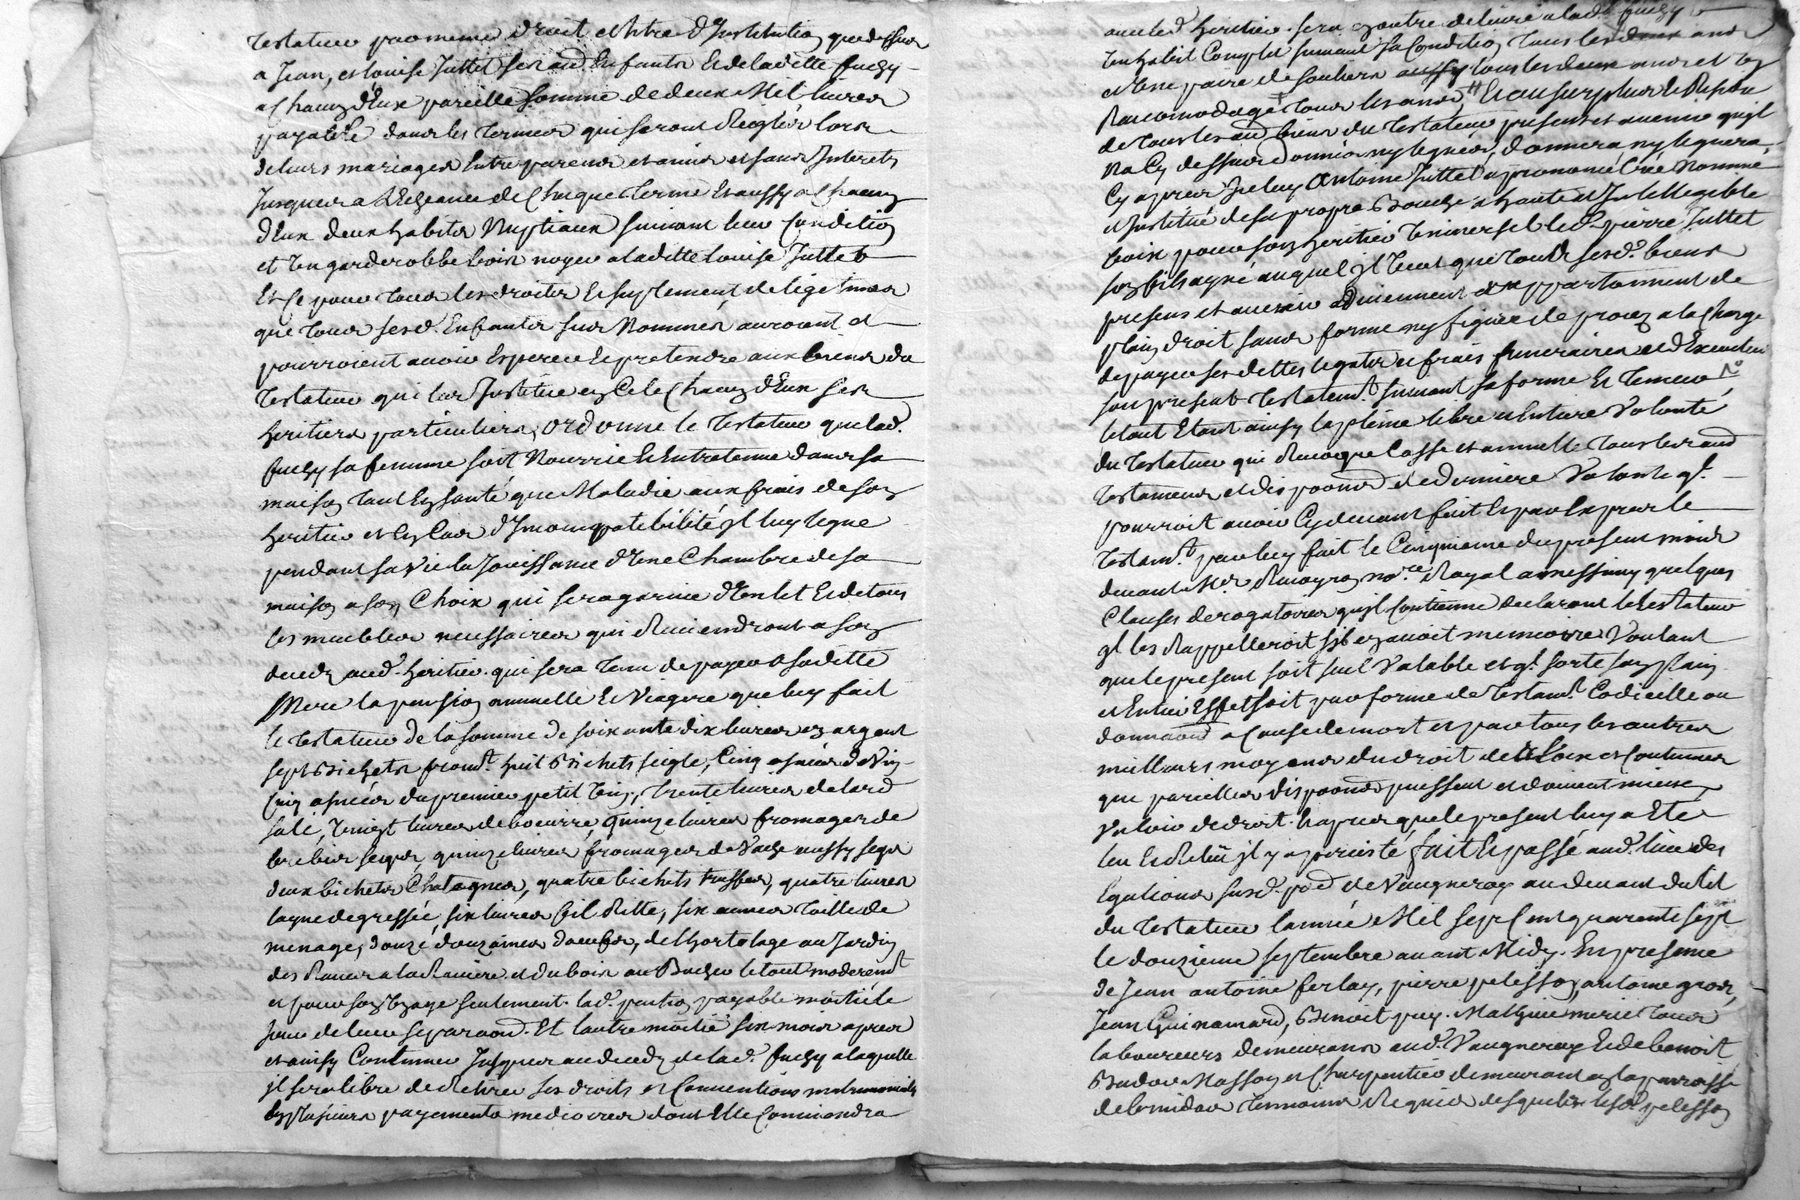 testateur par meme droit et titre d'Institution que dessus
a Jean, et Louise Juttet ses aud. Enfants et de laditte fuchy
a chacun d'Eux pareille somme de deux Mil livres
payable dans les termes qui seront Reglés lors
de leurs mariages Entre parens et amis et sans Interets
Jusques a l'Echeance de chaque terme Et aussy a chacun
d'Eux deux habits Nuptiaux suivant leur Condition
et un garderobbe bois noyer a laditte Louise Juttet
Et ce pour tous les droits et suplement de legitimes
que tous sesd. Enfants sus Nommés auroient et
pourroient avoir Esperer et pretendre aux biens du
testateur qui les Institue en Ce le chacun d'Eux ses
heritiers particuliers, ordonne le testateur que lad.
fuchy sa femme soit Nourrie et Entretenue dans sa
maison tant En santé que Maladie aux frais de son
heritier et En Cas d'Imcompatebilité il luy legue
pendant sa vie la Jouissance d'Une Chambre de sa
maison a son Choix qui sera garnie d'Un let et de tous
les meubles necessaires qui Reviendront a son
deceds aud. heritier qui sera tenu de payer a saditte
Mere la pension annuelle et Viagere que luy fait
le testateur de la somme de soixante dix livres en argent
sept Bichets from.t huit Bichets seigle, Cinq asnées de Vin
Cinq asnées du premier petit vin, trente livres de lard
salé, vingt livres de beurre, quinze livres fromages de
brebis seqs, quinze livres fromages de Vache aussy seqs
deux bichets Chatagnes, quatre bichets truffes, quatre livres
layne degressée, six livres fil Ritte, six aunes toille de
menage, douze douzaines d'oeufs, de l'hortolage au Jardin
des Raves a la Raviere et du bois au Bucher le tout moderem.t
et pour son Usage seulement lad. pention payable moitié le
Jour de leur separaon. Et l'autre moitié six mois apres
et ainsy Continuer Jusques au deceds de lad. fuchy a laquelle
il sera libre de Retirer ses droits et Conventions matrimoniales
En plusieurs payements mediocres dont Elle Conviendra
avec led. heritier sera En outre delivré a lad. fuchy
Un habit Complet suivant sa Condition tous les deux ans
et Une paire de souliers aussy tous les deux ans et un
Racomodage tous les ans Et au surplus et Reste
de tous les aud. biens du testateur presens et avenir qu'il
Na Cy dessus donnés ny legués, donnera ny leguera
Cy apres Iceluy Antoine Juttet a prononcé Créé Nommé
et Institué de sa propre Bouche a haute et Intellegible
voix pour son heritier Universel led. pierre Juttet
son fils ayné auquel il Veut que tous sesd. biens
presens et avenir adviennent et appartiennent de
plain droit sans forme ny figure de procez a la charge
de payer ses dettes legats et frais funeraires et d'Executer
son present testatem.t suivant sa forme Et teneur
le tout Etant ainsy la pleine libre et Entiere Volonté
du testateur qui Revoque Casse et annulle tous les aud.
testamens et dispoons de derniere Volonté q.l
pourroit avoir Cydevant fait Et par Exprès le
testam.t par luy fait le Cinquieme du present mois
devant M.e no.re Royal a messimy quelques
Clauses derogatoires qu'il Contienne declarant le testateur
q.l les Rappelleroit s'il en avoit memoire Voulant
que le present soit seul Valable et q.l sorte son plain
et Entier Effet soit par forme de testam.t Codicille ou
donnaon a Cause de mort et par tous les autres
meilleurs moyens du droit de Loix et Coutumes
que pareilles dispoons puissent et doivent mieux
Valoir de droit. Et apres que le present luy a Eté
leu Et Releu il y a persisté, fait Et passé aud. lieu des
Egations susd. p.sse de Vaugneray au devant du let
du testateur l'année Mil sept Cent quarente sept
le douzieme septembre avant Midy. En presence
de Jean antoine ferlay, pierre pelisson, antoine gros,
Jean Guinamard, Benoit puy, Mathieu merie tous
laboureurs demeurans aud. Vaugneray Et de benoit
Masson et Charpentier demeurant en la parroisse
de temoins Requis desquels led. pelisson